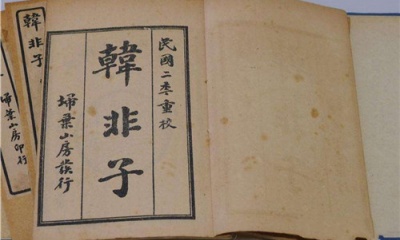 民國二年重校
韓非子
埽葉山房發行
韓非子
埽葉山房印行